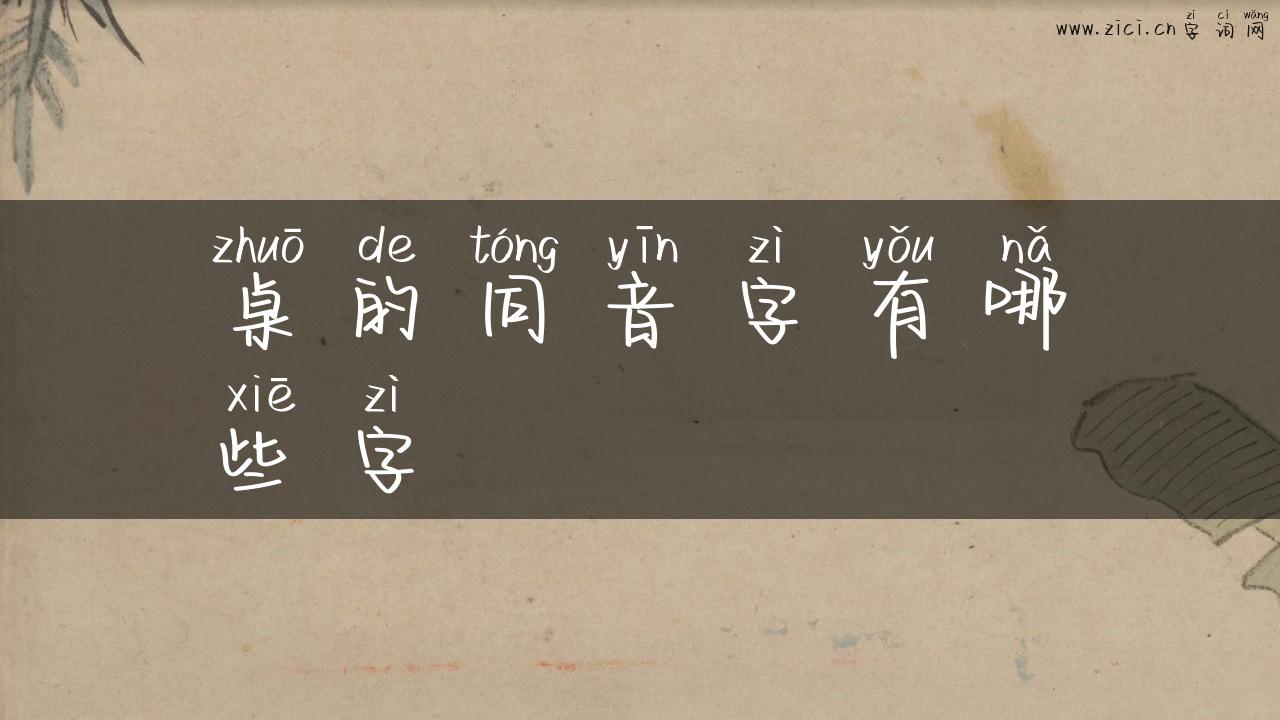 zì cí wǎng
www.zici.cn 字 词 网
zhuō de tóng yīn zì yǒu nǎ
桌 的 同 音 字 有 哪
xiē zì
些 字